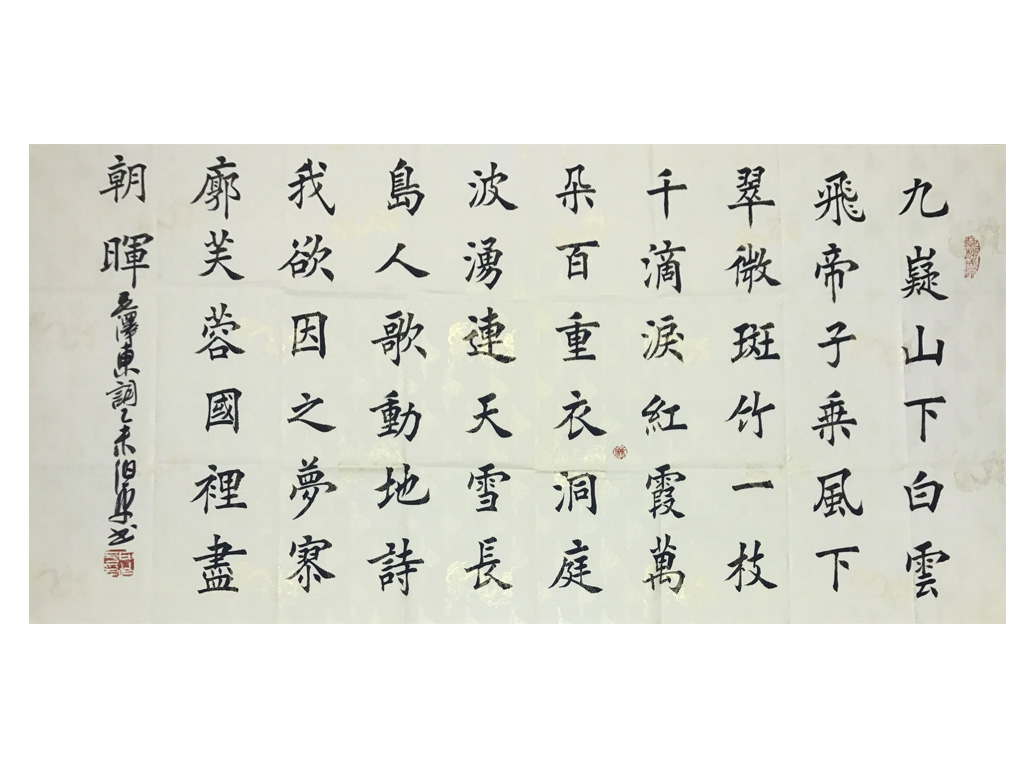 九嶷山下白雲
飛帝子乗風下
翠微斑竹一枝
千滴淚紅霞萬
朵百重衣洞庭
波湧連天雪長
島人歌動地詩
我欲因之夢寥
廓芙蓉國裡盡
朝暉
毛澤東詞乙未伯年書